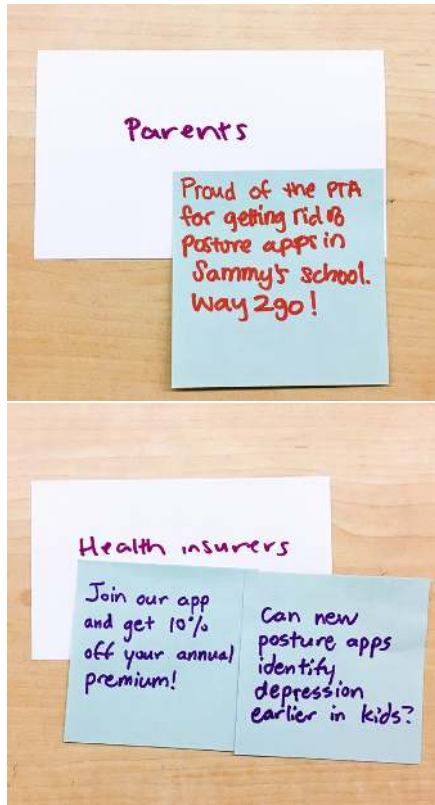 Parents
Proud of the PTA
for getting rid of
posture apps in
Sammy's school.
Way 2go!
Health insurers
Join our app
and get 10%
off your annual
premium!
Can new
posture apps
identify
depression
earlier in kids?